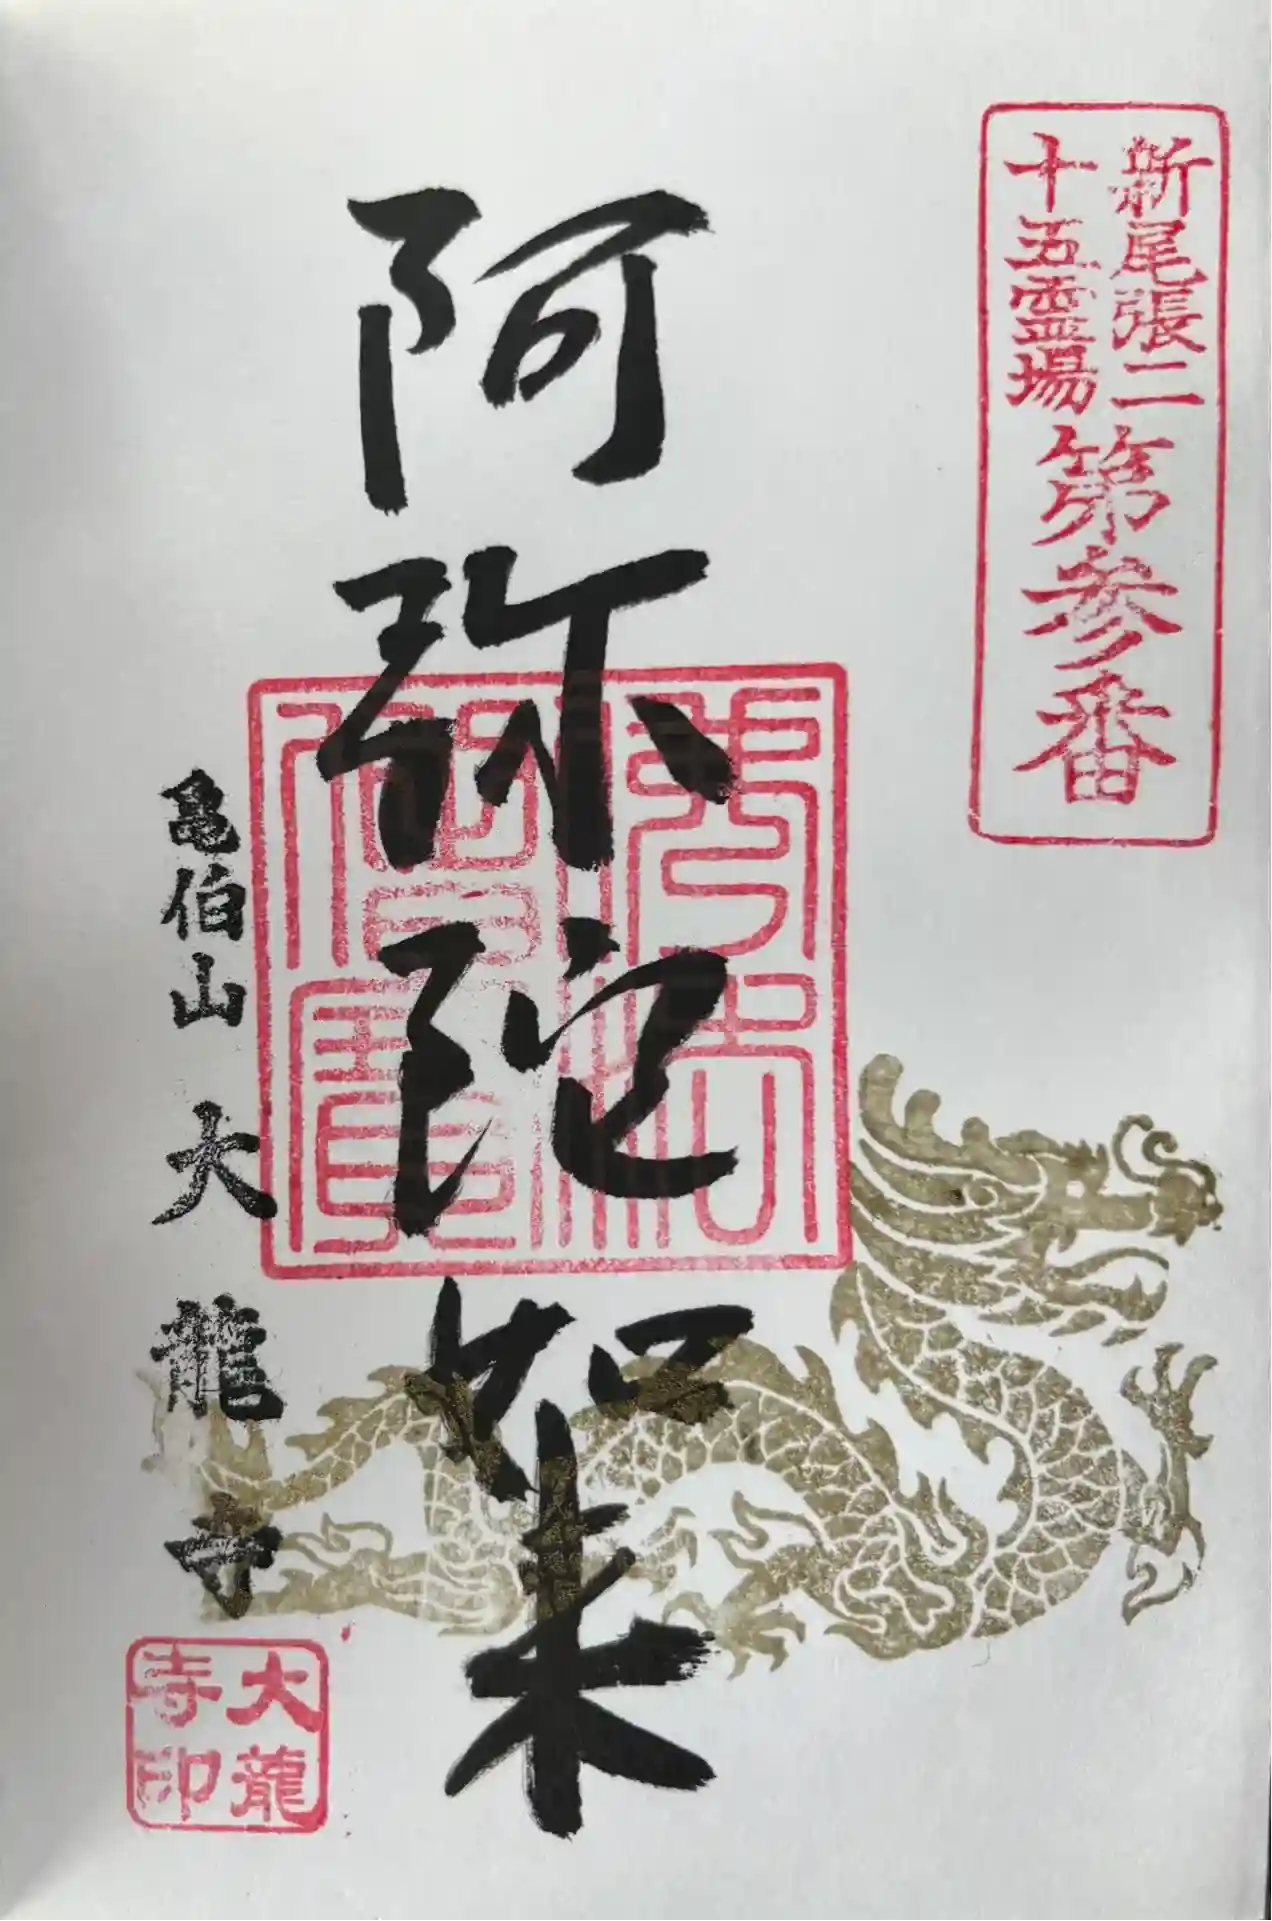 新尾張二
十五霊場
第参番
阿弥陀如来
佛法僧寶
亀伯山 大龍寺
大龍
寺印